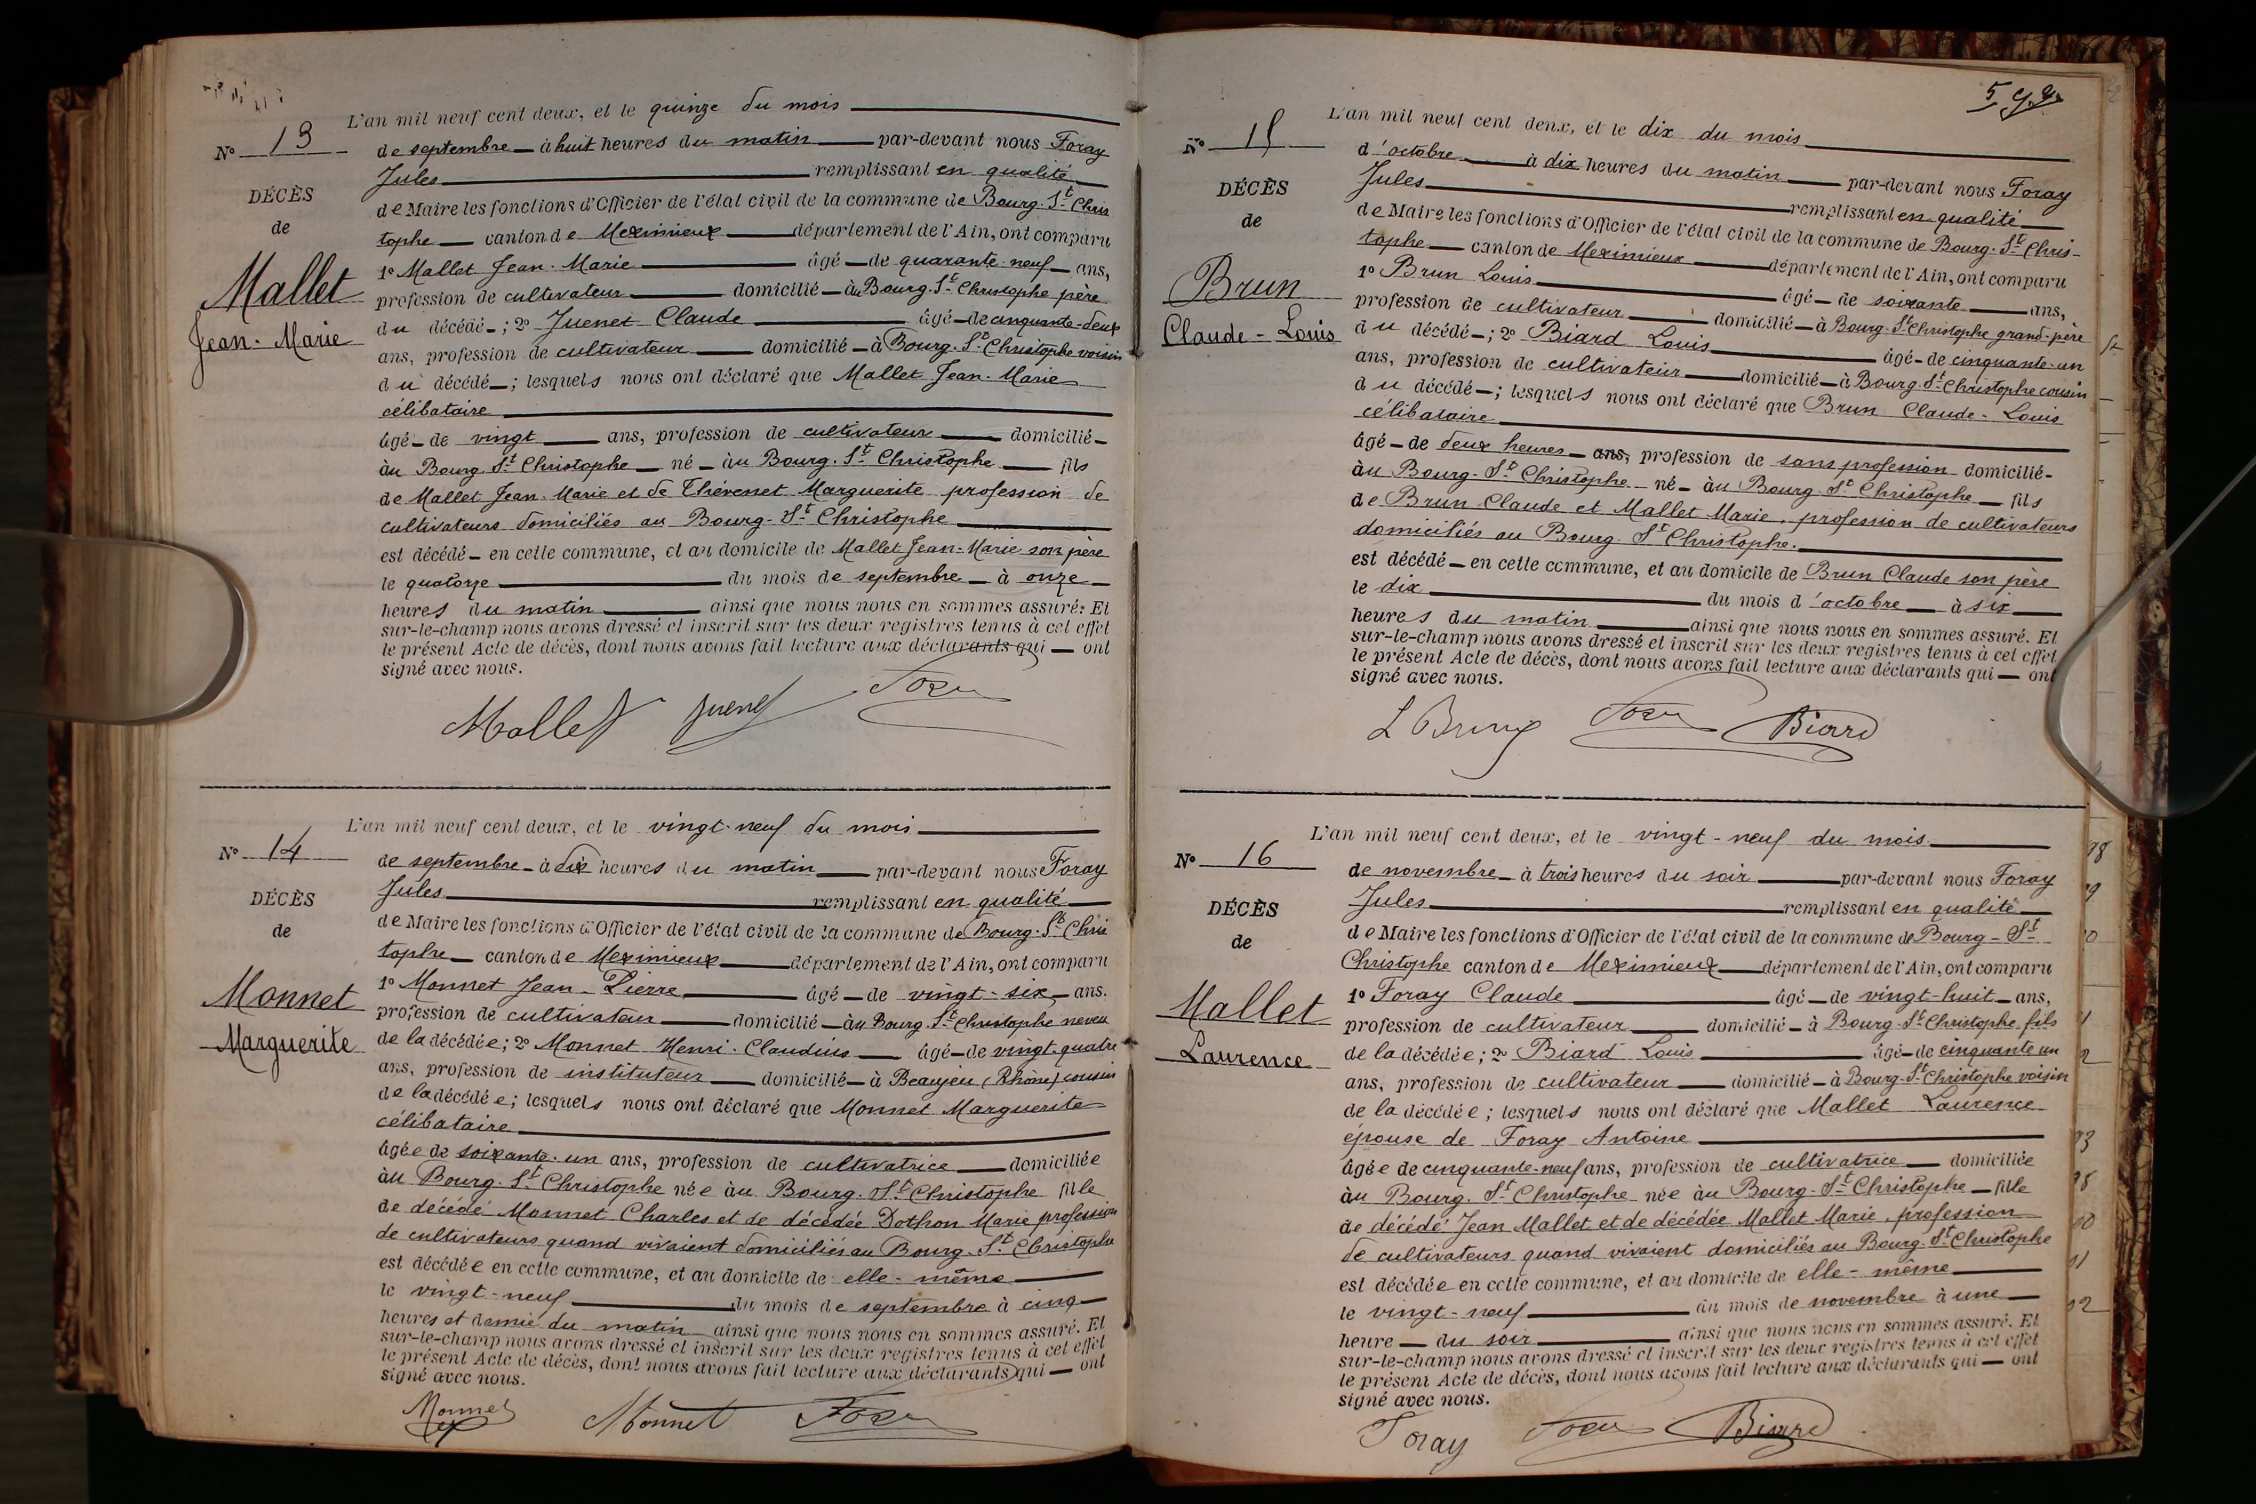 L'an mil neuf cent deux, et le quinze du mois
N° 13
de septembre à huit heures du matin par-devant nous Foray
Jules remplissant en qualité
DÉCÈS
de Maire les fonctions d'Officier de l'état civil de la commune de Bourg-St Chris
de
tophe canton de Meximieux département de l'Ain, ont comparu
1° Mallet Jean-Marie âgé de quarante-neuf ans,
Mallet
profession de cultivateur domicilié à Bourg-St Christophe père
du décédé ; 2° Juenet Claude âgé de cinquante-deux
Jean-Marie
ans, profession de cultivateur domicilié à Bourg-St Christophe voisin
du décédé ; lesquels nous ont déclaré que Mallet Jean-Marie
célibataire
âgé de vingt ans, profession de cultivateur domicilié
àu Bourg-St Christophe né àu Bourg-St Christophe fils
de Mallet Jean-Marie et de Thévenet Marguerite profession de
cultivateurs domiciliés au Bourg-St Christophe
est décédé en cette commune, et au domicile de Mallet Jean-Marie son père
le quatorze du mois de septembre à onze
heures du matin ainsi que nous nous en sommes assuré. Et
sur-le-champ nous avons dressé et inscrit sur les deux registres tenus à cet effet
le présent Acte de décès, dont nous avons fait lecture aux déclarants qui ont
signé avec nous.
Mallet Juenet Foray
L'an mil neuf cent deux, et le vingt-neuf du mois
N° 14
de septembre à dix heures du matin par-devant nous Foray
Jules remplissant en qualité
DÉCÈS
de Maire les fonctions d'Officier de l'état civil de la commune de Bourg-St Chris
de
tophe canton de Meximieux département de l'Ain, ont comparu
1° Monnet Jean-Pierre âgé de vingt-six ans.
Monnet
profession de cultivateur domicilié àu Bourg-St Christophe neveu
de la décédée; 2° Monnet Henri-Claudius âgé de vingt-quatre
Marguerite
ans, profession de instituteur domicilié à Beaujeu (Rhône) cousin
de la décédée; lesquels nous ont déclaré que Monnet Marguerite
célibataire
âgée de soixante-un ans, profession de cultivatrice domiciliée
àu Bourg-St Christophe née àu Bourg-St Christophe fille
de décédé Monnet Charles et de décédée Dothon Marie profession
de cultivateurs quand vivaient domiciliés au Bourg-St Christophe
est décédée en cette commune, et au domicile de elle-même
le vingt-neuf du mois de septembre à cinq
heures et demie du matin ainsi que nous nous en sommes assuré. Et
sur-le-champ nous avons dressé et inscrit sur les deux registres tenus à cet effet
le présent Acte de décès, dont nous avons fait lecture aux déclarants qui ont
signé avec nous.
Monnet Monnet Foray
L'an mil neuf cent deux, et le dix du mois
N° 15
d'octobre à dix heures du matin par-devant nous Foray
Jules remplissant en qualité
DÉCÈS
de Maire les fonctions d'Officier de l'état civil de la commune de Bourg-St Chris-
de
tophe canton de Meximieux département de l'Ain, ont comparu
1° Brun Louis âgé de soixante ans,
Brun
profession de cultivateur domicilié à Bourg-St Christophe grand-père
Claude-Louis
du décédé ; 2° Biard Louis âgé de cinquante-un
ans, profession de cultivateur domicilié à Bourg-St Christophe cousin
du décédé ; lesquels nous ont déclaré que Brun Claude-Louis
célibataire
âgé de deux heures ans, profession de sans profession domicilié
àu Bourg-St Christophe né àu Bourg-St Christophe fils
de Brun Claude et Mallet Marie, profession de cultivateurs
domiciliés au Bourg-St Christophe.
est décédé en cette commune, et au domicile de Brun Claude son père
le dix du mois d'octobre à six
heures du matin ainsi que nous nous en sommes assuré. Et
sur-le-champ nous avons dressé et inscrit sur les deux registres tenus à cet effet
le présent Acte de décès, dont nous avons fait lecture aux déclarants qui ont
signé avec nous.
L Brun Foray Biard
L'an mil neuf cent deux, et le vingt-neuf du mois
N° 16
de novembre à trois heures du soir par-devant nous Foray
Jules remplissant en qualité
DÉCÈS
de Maire les fonctions d'Officier de l'état civil de la commune de Bourg-St
de
Christophe canton de Meximieux département de l'Ain, ont comparu
1° Foray Claude âgé de vingt-huit ans,
Mallet
profession de cultivateur domicilié à Bourg-St Christophe fils
de la décédée; 2° Biard Louis âgé de cinquante un
Laurence
ans, profession de cultivateur domicilié à Bourg-St Christophe voisin
de la décédée; lesquels nous ont déclaré que Mallet Laurence
épouse de Foray Antoine
âgée de cinquante-neuf ans, profession de cultivatrice domiciliée
àu Bourg-St Christophe née àu Bourg-St Christophe fille
de décédé Jean Mallet et de décédée Mallet Marie, profession
de cultivateurs quand vivaient domiciliés au Bourg-St Christophe
est décédée en cette commune, et au domicile de elle-même
le vingt-neuf du mois de novembre à une
heure du soir ainsi que nous nous en sommes assuré. Et
sur-le-champ nous avons dressé et inscrit sur les deux registres tenus à cet effet
le présent Acte de décès, dont nous avons fait lecture aux déclarants qui ont
signé avec nous.
Foray Foray Biard